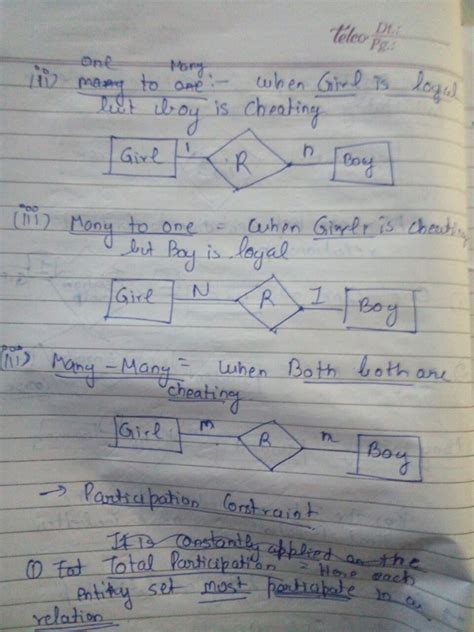 teleo Dt.:
Pg.:
one Many
(ii) many to one:- when Girl is loyal
but boy is cheating
Girl 1 R n Boy
(iii) Many to one = when Girl is cheating
but Boy is loyal
Girl N R 1 Boy
Many - Many = when Both both are
cheating
Girl m R n Boy
→ Participation Constraint
It is constantly applied on the
① Total Participation = Here each
Entity set most participate in
relation